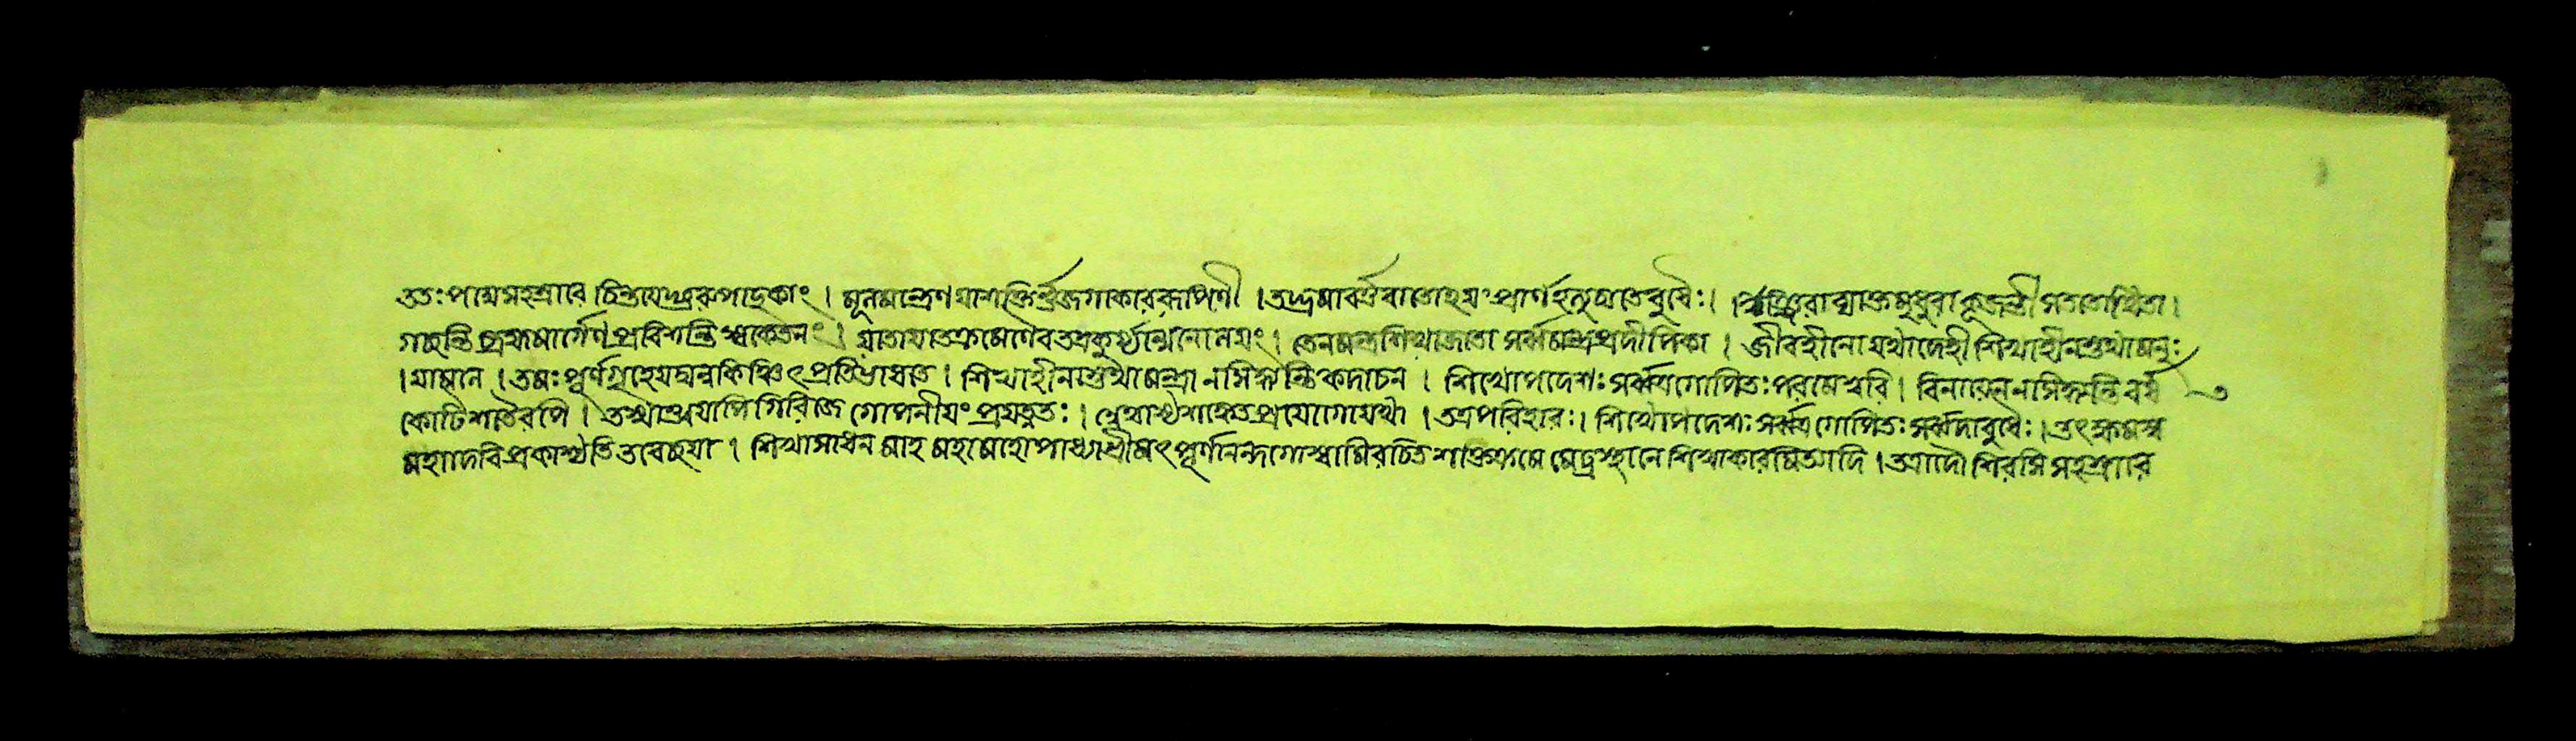 ততঃ পদ্মসহস্রারে চিন্তয়েদ্গুরুপাদুকাং। মূলমন্ত্রেণ যা শক্তির্ভুজগাকাররূপিণী। তদ্ভ্রমাবর্ত্তবাতোহয়ং প্রাণ ইত্যুচ্যতে বুধৈঃ। মধুরা কূজন্তী সততোত্থিতা।
গচ্ছন্তি ব্রহ্মমার্গেণ প্রবিশন্তি স্বকেতনং। যাতায়াতক্রমেণৈব তত্র কুর্য্যান্মনোলয়ং। তেন মন্ত্রশিখা জাতা সর্ব্বমন্ত্রপ্রদীপিকা। জীবহীনো যথা দেহী শিখাহীনস্তথা মনুঃ
। তমঃপূর্ণগৃহে যদ্বন্ন কিঞ্চিৎ প্রতিভাসতে। শিখাহীনস্তথা মন্ত্রা ন সিদ্ধ্যন্তি কদাচন। শিখোপদেশঃ সর্ব্বত্র গোপিতঃ পরমেশ্বরি। বিনা যেন ন সিদ্ধ্যন্তি বর্ষ ৩
কোটিশতৈরপি। তস্মাত্ত্বয়াপি গিরিজে গোপনীয়ং প্রযত্নতঃ। যথা। তত্র পরিহারঃ। শিখোপদেশঃ সর্ব্বত্র গোপিতঃ সর্ব্বদা বুধৈঃ। তৎ ক্ষমস্ব
মহাদেবি প্রকাশ্যতি তবেচ্ছয়া। শিখাসাধনমাহ মহামহোপাধ্যায় শ্রীমৎ পূর্ণানন্দগোস্বামিরচিত শাক্তক্রমে মেঢ্রস্থানে শিখাকারমিত্যাদি। তত্রাদৌ শিরসি সহস্রারে